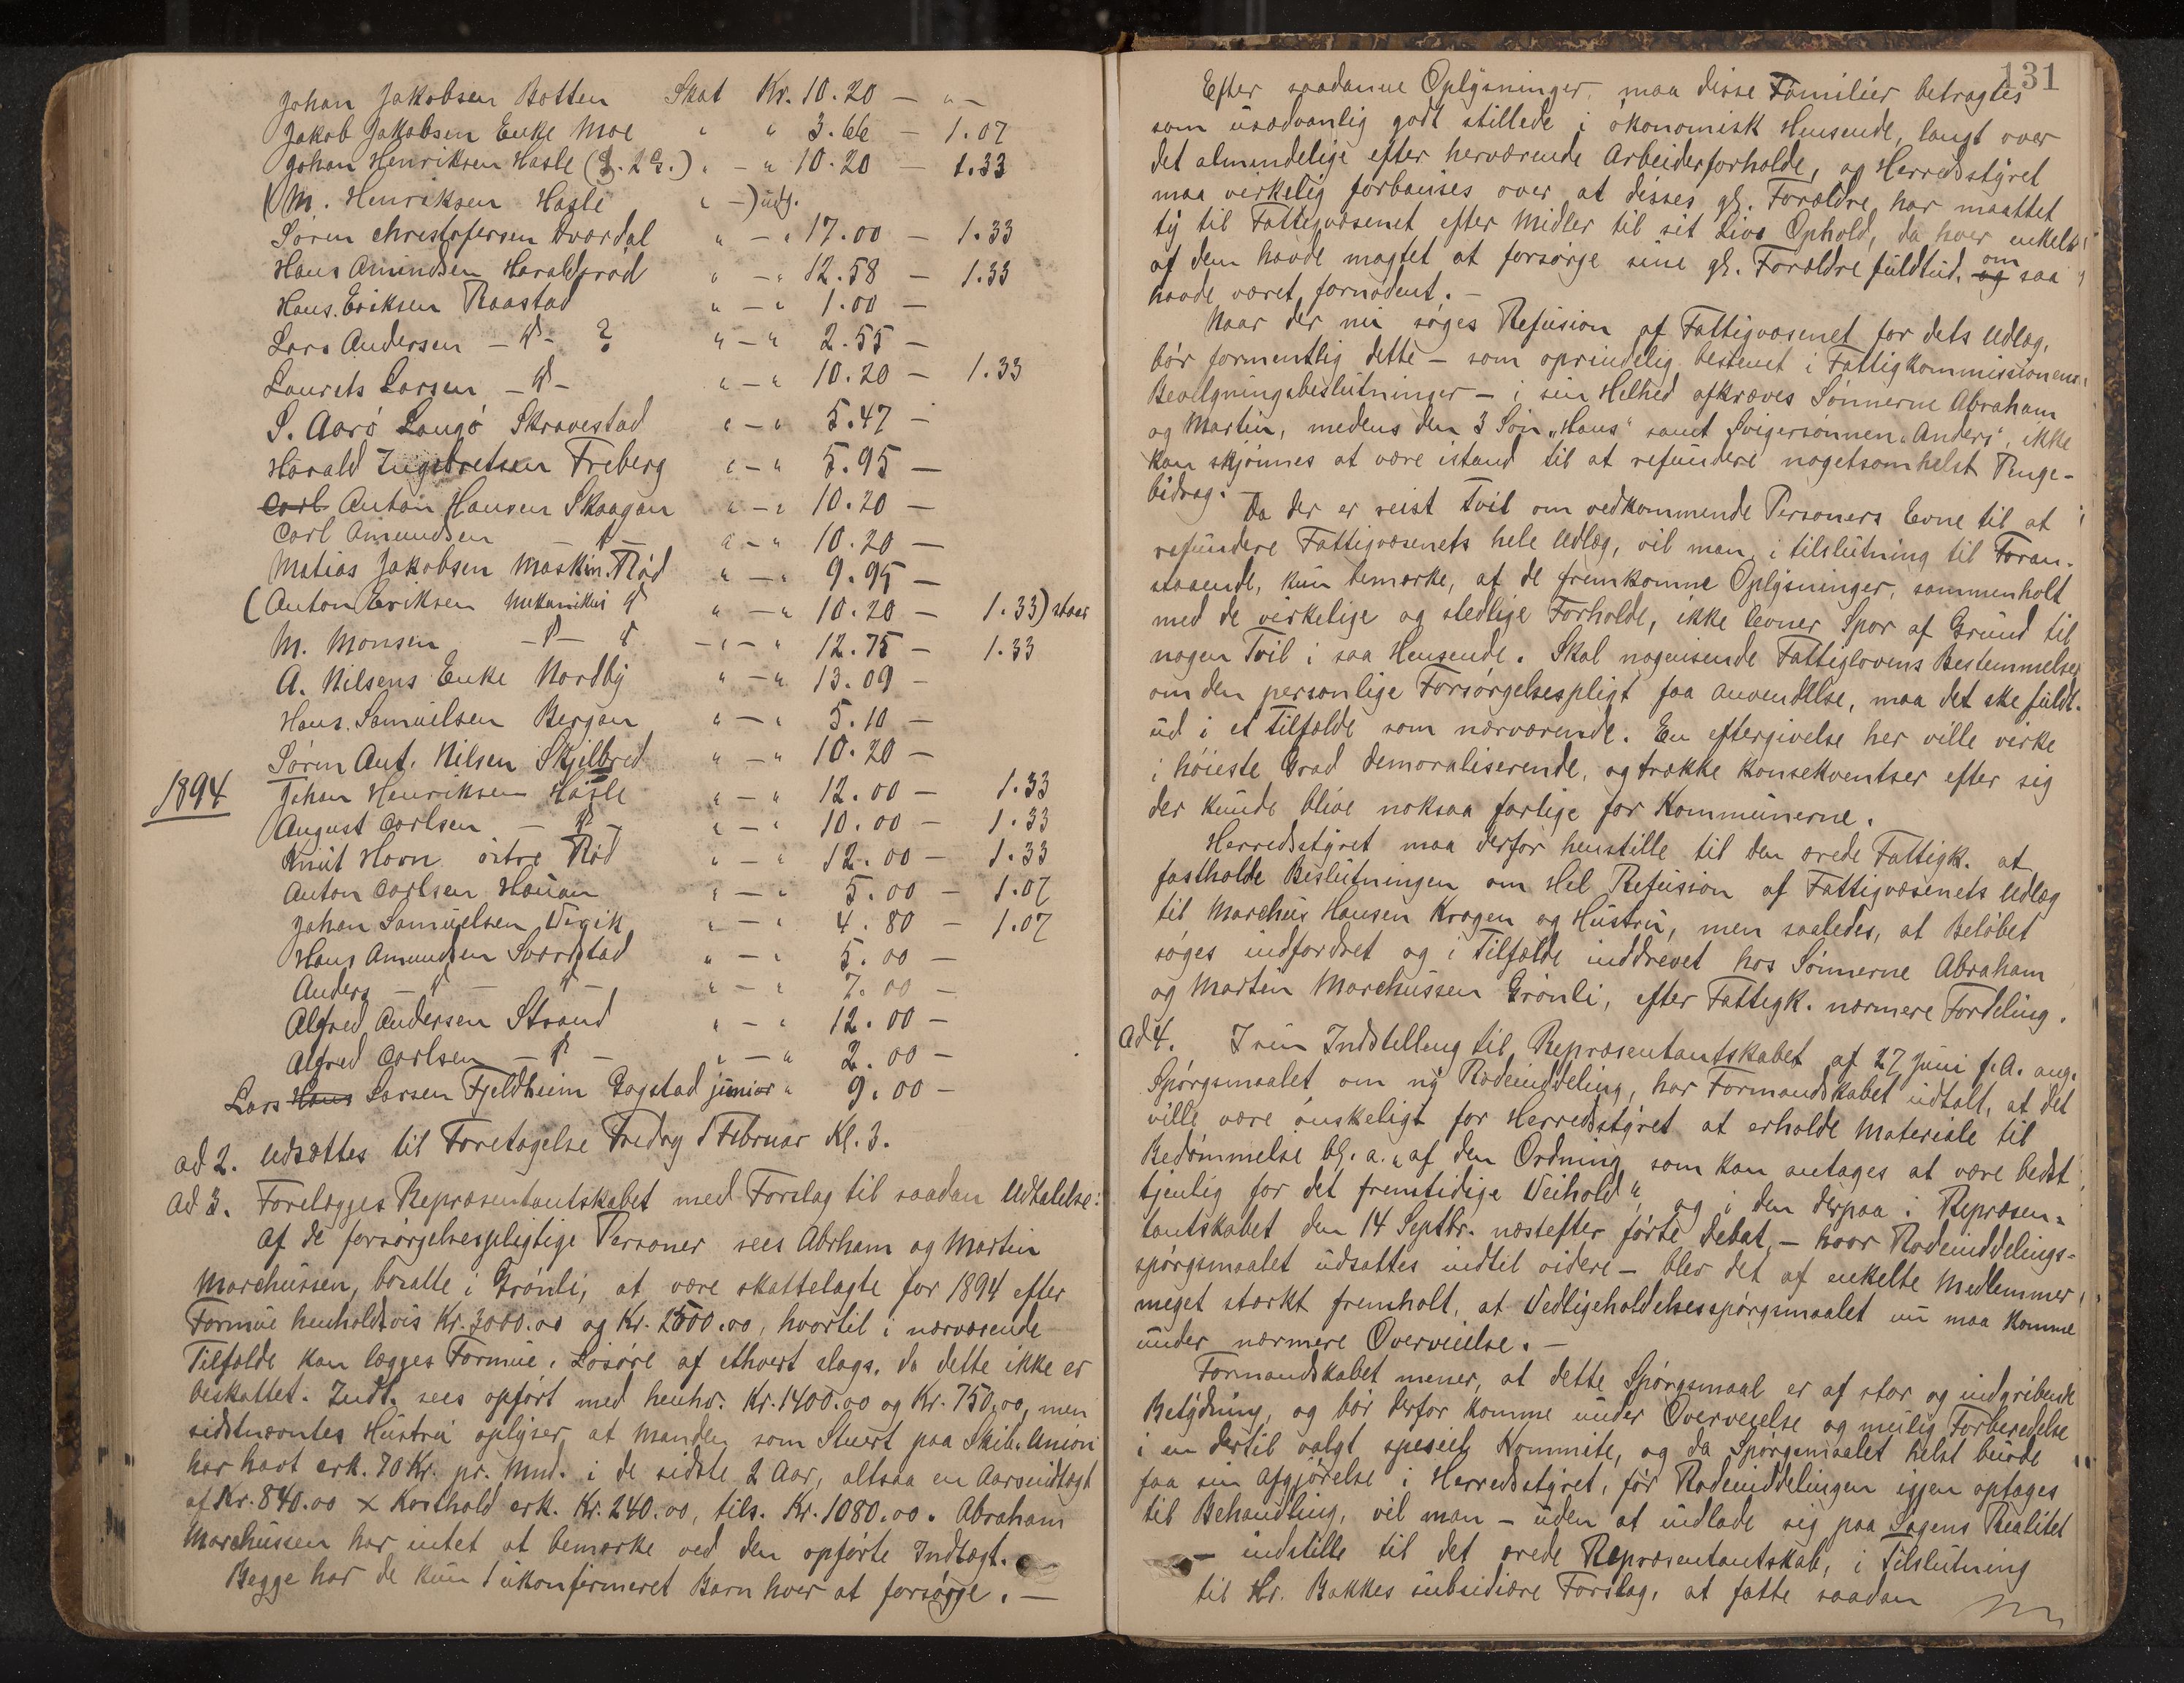 Johan Jakobsen Botten Skat Kr. 10.20 — „ —
Jakob Jakobsen Enke Moe „ „ 3.66 — 1.07
Johan Henriksen Hasle (g. 2 G.) „ — „ 10.20 — 1.33
(M. Henriksen Hasle „ —) udg.
Søren Christofersen Hvordal „ — „ 17.00 — 1.33
Hans Amindsen Haraldsrød „ — „ 12.58 — 1.33
Hans Eriksen Raastad „ — „ 1.00 —
Lars Andersen — d — ? „ — „ 2.55 —
Laurits Larsen — d — „ — „ 10.20 — 1.33
S. Aarø Langø Skravestad „ — „ 5.47 —
Harald Ingebretsen Freberg „ — „ 5.95 —
Carl Anton Hansen Skaagan „ — „ 10.20 —
Carl Amundsen — d — „ — „ 10.20 —
Matias Jakobsen Maskin. Rød „ — „ 9.95 —
(Anton Eriksen Mekanikus d „ — „ 10.20 — 1.33) staar
M. Monsen — d — d — „ — „ 12.75 — 1.33
A. Nilsens Enke Nordby „ — „ 13.09 —
Hans Samuelsen Bergan „ — „ 5.10 —
Søren Ant. Nilsen Skjelbred „ — „ 10.20 —
1894 Johan Henriksen Hasle „ — „ 12.00 — 1.33
August Carlsen — d — „ — „ 10.00 — 1.33
Knut Hovn østre Rød „ — „ 12.00 — 1.33
Anton Carlsen Hauan „ — „ 5.00 — 1.07
Johan Samuelsen Vegik „ — „ 4.80 — 1.07
Hans Amundsen Sverstad „ — „ 5.00 —
Anders — d — d — „ — „ 7.00 —
Alfred Andersen Strand „ — „ 12.00 —
Alfred Carlsen — d — „ — „ 2.00 —
Lars Hans Larsen Fjeldheim Gogstad junior „ 9.00 —
ad 2. Udsættes til Foretagelse Fredag 1 Februar Kl. 3.
ad 3. Forelægges Repræsentantskabet med Forslag til saadan Udtalelse:
Af de forsørgelsespligtige Personer sees Abrham og Martin
Marchussen, bosatte i Grønli, at være skattelagte for 1894 efter
Formue henholdsvis Kr. 3000.00 og Kr. 2500.00, hvortil i nærværende
Tilfælde kan lægges Formue i Løsøre af ethvert slags, da dette ikke er
beskattet. Indt. sees opført med henhv. Kr. 1400.00 og Kr. 750.00, men
sidstnævntes Hustru oplyser, at Manden som Stuert paa Skib. Union
har havt crk. 70 Kr. pr. Mnd. i de sidste 2 Aar, altsaa en Aarsindtægt
af Kr. 840.00 + Kosthold crk. Kr. 240.00, tils. Kr. 1080.00. Abraham
Marchussen har intet at bemærke ved den opførte Indtægt.
Begge har de kun 1 ukonfirmeret Barn hver at forsørge. —
131
Efter saadanne Oplysninger, maa disse Familier betragtes
som usædvanlig godt stillede i økonomisk Hensende, langt over
det almindelige efter herværende Arbeiderforholde, og Herredsstyret
maa virkelig forbauses over at disses gl. Forældre har maattet
ty til Fattigvæsenet efter Midler til sit Livs Ophold, da hver enkelt
af dem havde magtet at forsørge sine gl. Forældre fuldtud, og om saa
havde været fornødent. —
Naar der nu søges Refusion af Fattigvæsenet for dets Udlæg,
bør formentlig dette — som oprindelig bestemt i Fattigkommissionens
Bevilgningsbeslutninger — i sin Helhed afkræves Sønnerne Abraham
og Martin, medens den 3 Søn „Hans“ samt Svigersønnen „Anders“ ikke
kan skjønnes at være istand til at refundere nogetsomhelst Penge-
bidrag.
Da der er reist Tvil om vedkommende Personers Evne til at
refundere Fattigvæsenets hele Udlæg, vil man, i tilslutning til Foran-
staaende, kun bemærke, at de fremkomne Oplysninger, sammenholt
med de virkelige og stedlige Forholde, ikke levner Spor af Grund til
nogen Tvil i saa Henseende. Skal nogensinde Fattiglovens Bestemmelser
om den personlige Forsørgelsespligt faa anvendelse, maa det ske fuldt-
ud i et Tilfælde som nærværende. En eftergivelse her ville virke
i høieste Grad demoraliserende, og trække Konsekventser efter sig
der kunde blive noksaa farlige for Kommunerne.
Herredsstyret maa derfor henstille til den ærede Fattigk. at
fastholde Beslutningen om Hel Refusion af Fattigvæsenets Udlæg
til Marchus Hansen Kragen og Hustru, men saaledes, at Beløbet
søges indfordret og i Tilfælde inddrevet hos Sønnerne Abraham
og Martin Marchussen Grønli, efter Fattigk. nærmere Fordeling.
ad 4. I sin Indstilling til Repræsentantskabet af 27 Juni f.A. ang.
Spørgsmaalet om ny Rodeinddeling, har Formandskabet udtalt, at det
ville være ønskeligt for Herredsstyret at erholde Materiale til
Bedømmelse bl. a. „af den Ordning som kan antages at være bedst
tjenlig for det fremtidige Veihold“, og i den derpaa i Repræsen-
tantskabet den 14 Septbr. næstefter førte Debat, — hvor Rodeinddelings-
spørgsmaalet udsattes indtil videre — blev det af enkelte Medlemmer
meget stærkt fremholt, at Vedligeholdelsesspørgsmaalet nu maa komme
under nærmere Overveielse. —
Formandskabet mener, at dette Spørgsmaal er af stor og indgribende
Betydning, og bør derfor komme under Overveielse og mulig Forberedelse
i en dertil valgt speciel Kommite, og da Spørgsmaalet helst burde
faa sin Afgjørelse i Herredsstyret, før Rodeinddelingen igjen optages
til Behandling, vil man — uden at indlade sig paa Sagens Realitet
— indstille til det ærede Repræsentantskab, i Tilslutning
til Hr. Bakkes subsidiære Forslag, at fatte saadan